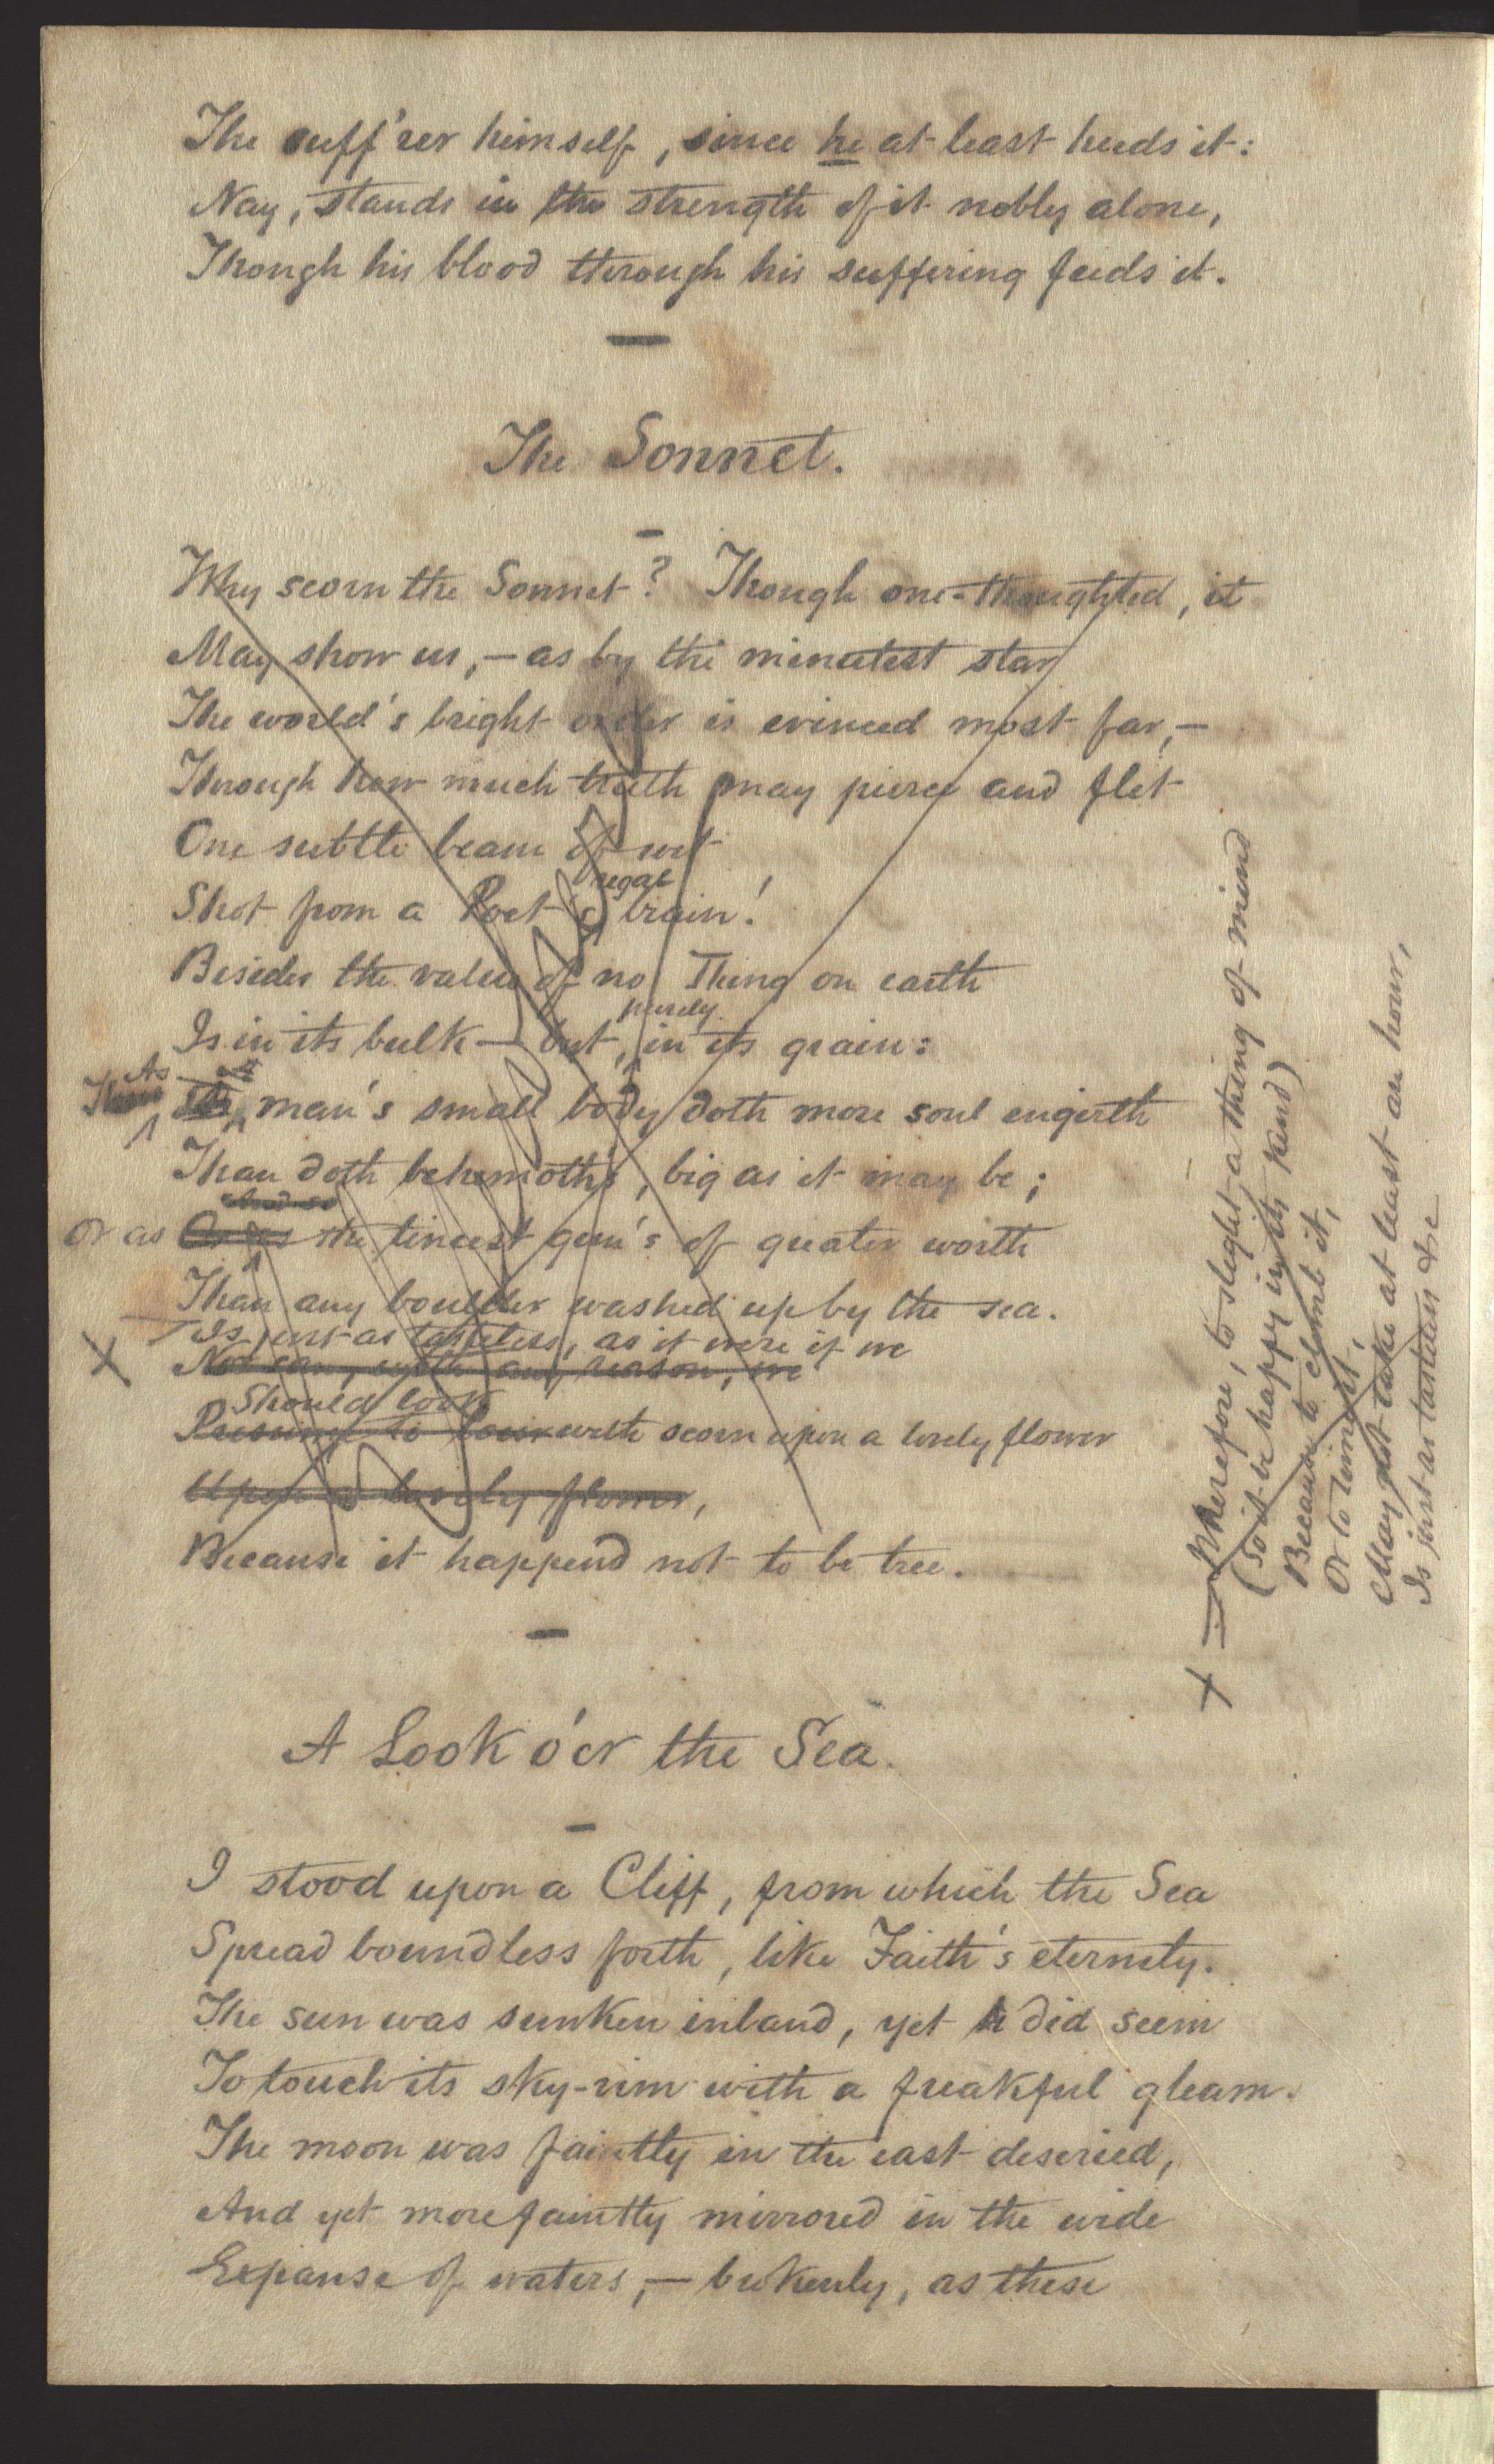 The suff'rer himself, since he at least heeds it:
Nay, stands in the strength of it nobly alone,
Though his blood through his suffering feeds it.
The Sonnet.
Why scorn the Sonnet? Though one-thoughted, it
May show us, — as by the minutest star
The world's bright order is evinced most far, —
Through how much truth may pierce and flit
One subtle beam of wit
regal
Shot from a Poet's brain!
Besides the value of no Thing on earth
purely
Is in its bulk — but, in its grain:
As
man's small body doth more soul engirth
Than doth behemoth's, big as it may be;
And so
Or as Or as the tineest gem's of greater worth
Than any boulder washed up by the sea.
Is just as tasteless, as it were if we
X Nor can, with any reason, we
Should look
Presume to look with scorn upon a lovely flower
Upon a lovely flower,
Because it happend not to be tree.
X — Wherefore, to slight a thing of mind
(So it be happy in its kind)
Because to climb it,
Or to limn it,
May not take at least an hour,
Is just as tasteless &c
A Look o'er the Sea.
I stood upon a Cliff, from which the Sea
Spread boundless forth, like Faith's eternity.
The sun was sunken inland, yet did seem
To touch its sky-rim with a freakful gleam.
The moon was faintly in the east descried,
And yet more faintly mirrored in the wide
Expanse of waters, — brokenly, as these